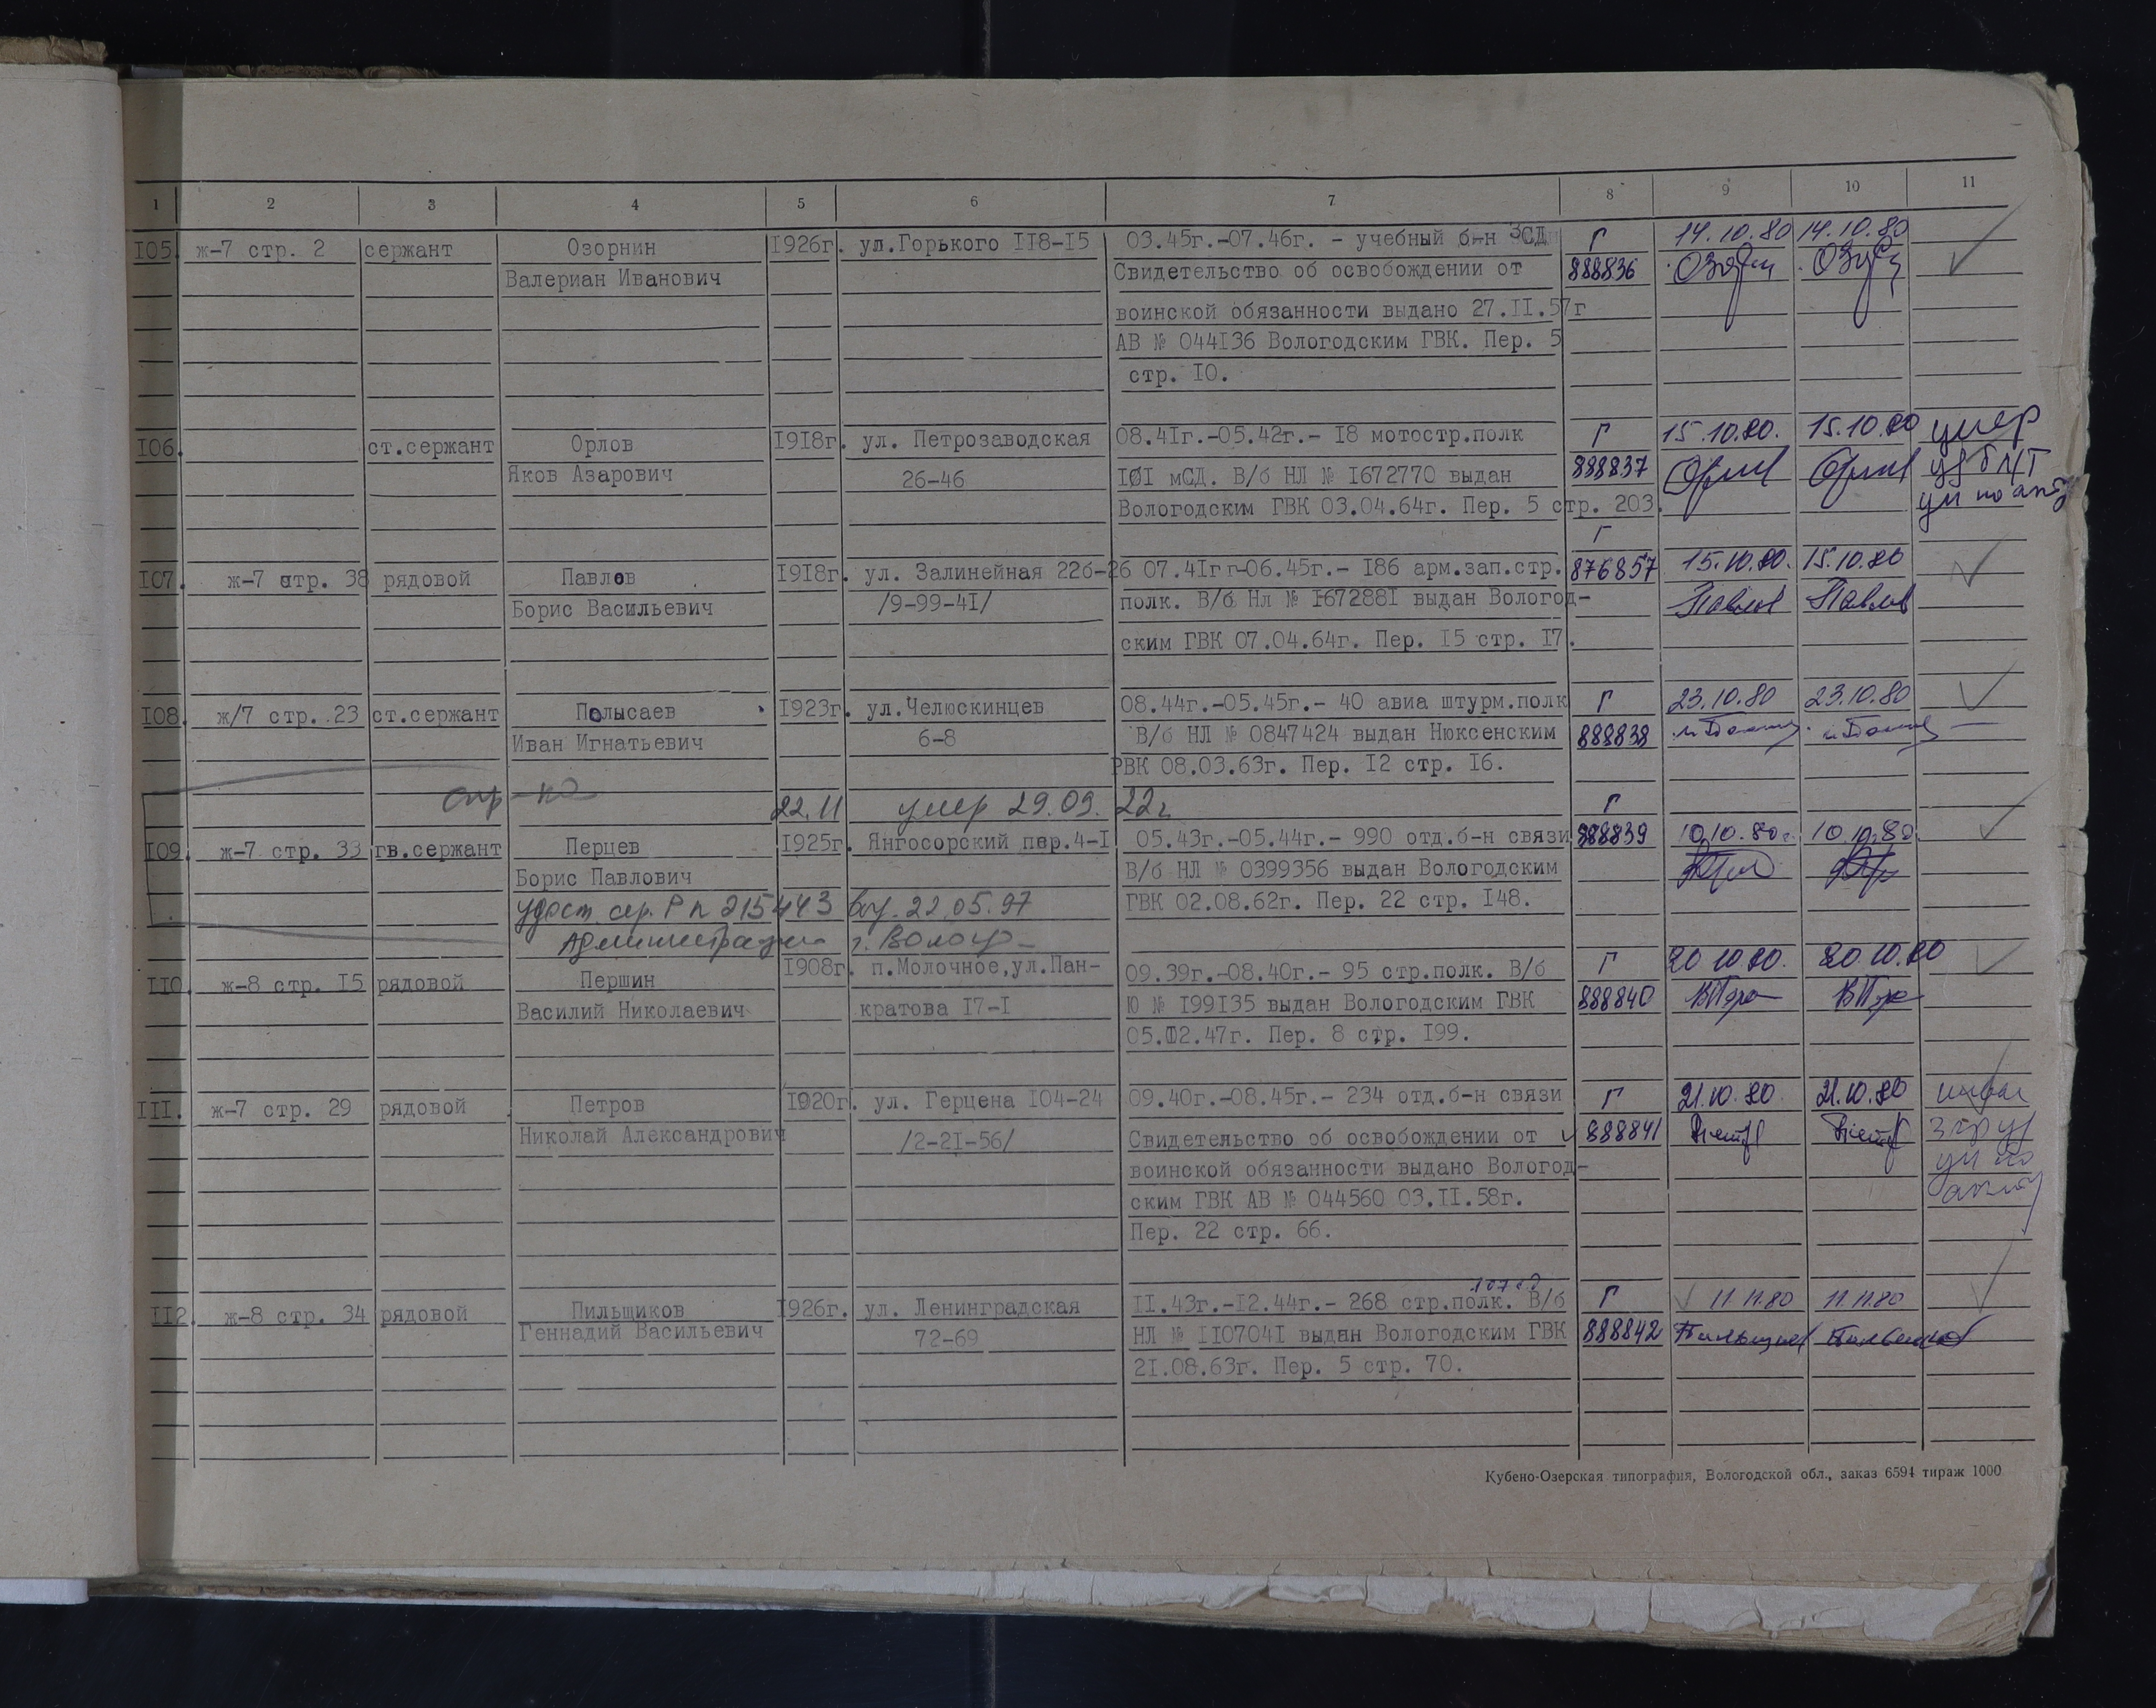 1 2 3 4 5 6 7 8 9 10 11
105. ж-7 стр. 2 сержант Озорнин 1926г. ул.Горького 118-15 03.45г.-07.46г. - учебный б-н ЗСД Г 14.10.80 14.10.80
Валериан Иванович Свидетельство об освобождении от 888836
воинской обязанности выдано 27.11.57г
АВ № 044136 Вологодским ГВК. Пер. 5
стр. 10.
106. ст.сержант Орлов 1918г. ул. Петрозаводская 08.41г.-05.42г.- 18 мотостр.полк Г 15.10.80. 15.10.80 умер
Яков Азарович 26-46 101 мСД. В/б НЛ № 1672770 выдан 888837
Вологодским ГВК 03.04.64г. Пер. 5 стр. 203.
Г
107. ж-7 стр. 38 рядовой Павлов 1918г. ул. Залинейная 22б-26 07.41г г-06.45г.- 186 арм.зап.стр. 876857 15.10.80. 15.10.80
Борис Васильевич /9-99-41/ полк. В/б Нл № 1672881 выдан Вологод- Павлов Павлов
ским ГВК 07.04.64г. Пер. 15 стр. 17.
108. ж/7 стр. 23 ст.сержант Полысаев 1923г. ул.Челюскинцев 08.44г.-05.45г.- 40 авиа штурм.полк Г 23.10.80 23.10.80
Иван Игнатьевич 6-8 В/б НЛ № 0847424 выдан Нюксенским 888838
РВК 08.03.63г. Пер. 12 стр. 16.
22.11 умер 29.09.22г Г
109. ж-7 стр. 33 гв.сержант Перцев 1925г. Янгосорский пер.4-1 05.43г.-05.44г.- 990 отд.б-н связи 888839 10.10.80г 10.10.80
Борис Павлович В/б НЛ № 0399356 выдан Вологодским
удост. сер. Р № 215443 выд. 22.05.97 ГВК 02.08.62г. Пер. 22 стр. 148.
Администрации г. Волог
110. ж-8 стр. 15 рядовой Першин 1908г. п.Молочное,ул.Пан- 09.39г.-08.40г.- 95 стр.полк. В/б Г 20.10.80. 20.10.80
Василий Николаевич кратова 17-1 Ю № 199135 выдан Вологодским ГВК 888840
05.02.47г. Пер. 8 стр. 199.
111. ж-7 стр. 29 рядовой Петров 1920г. ул. Герцена 104-24 09.40г.-08.45г.- 234 отд.б-н связи Г 21.10.80. 21.10.80
Николай Александрович /2-21-56/ Свидетельство об освобождении от 888841
воинской обязанности выдано Вологод-
ским ГВК АВ № 044560 03.11.58г.
Пер. 22 стр. 66.
112. ж-8 стр. 34 рядовой Пильщиков 1926г. ул. Ленинградская 11.43г.-12.44г.- 268 стр.полк. В/б Г 11.11.80 11.11.80
Геннадий Васильевич 72-69 НЛ № 1107041 выдан Вологодским ГВК 888842
21.08.63г. Пер. 5 стр. 70.
Кубено-Озерская типография, Вологодской обл., заказ 6594 тираж 1000